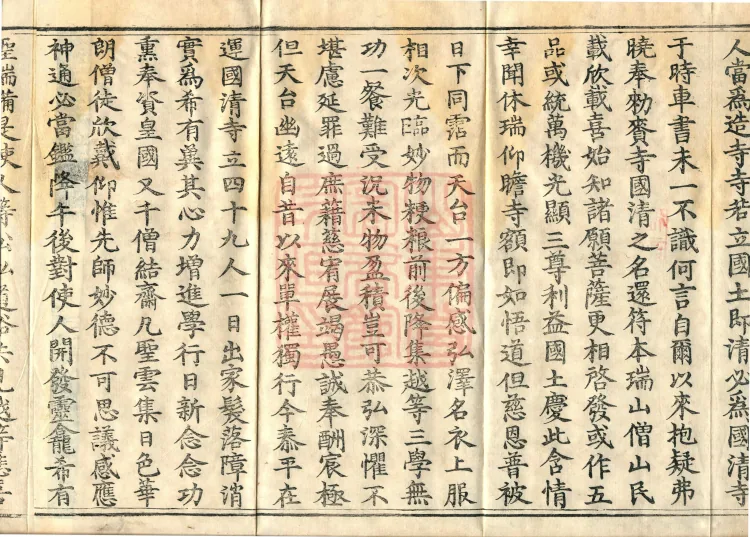 人當爲造寺寺若立國土即清必爲國清寺
于時車書未一不識何言自爾以來抱疑弗
曉奉勑賚寺國清之名還符本瑞山僧山民
載欣載喜始知諸願菩薩更相啓發或作五
品或統萬機光顯三尊利益國土慶此含情
幸聞休瑞仰瞻寺額即如悟道但慈恩普被
日下同霑而天台一方偏感弘澤名衣上服
相次光臨妙物粳粮前後降集越等三學無
功一餐難受況未物盈積豈可恭弘深懼不
堪慮延罪過庶籍慈宥展竭愚誠奉酬宸極
但天台幽遠自昔以來單權獨行今泰平在
運國清寺立四十九人一日出家髮落障消
實為希有冀其心力增進學行日新念念功
熏奉資皇國又千僧結齋凡聖雲集日色華
朗僧徒欣戴仰惟先師妙德不可思議感應
神通必當鑑降午後對使人開發靈龕希有
聖瑞備是使人等